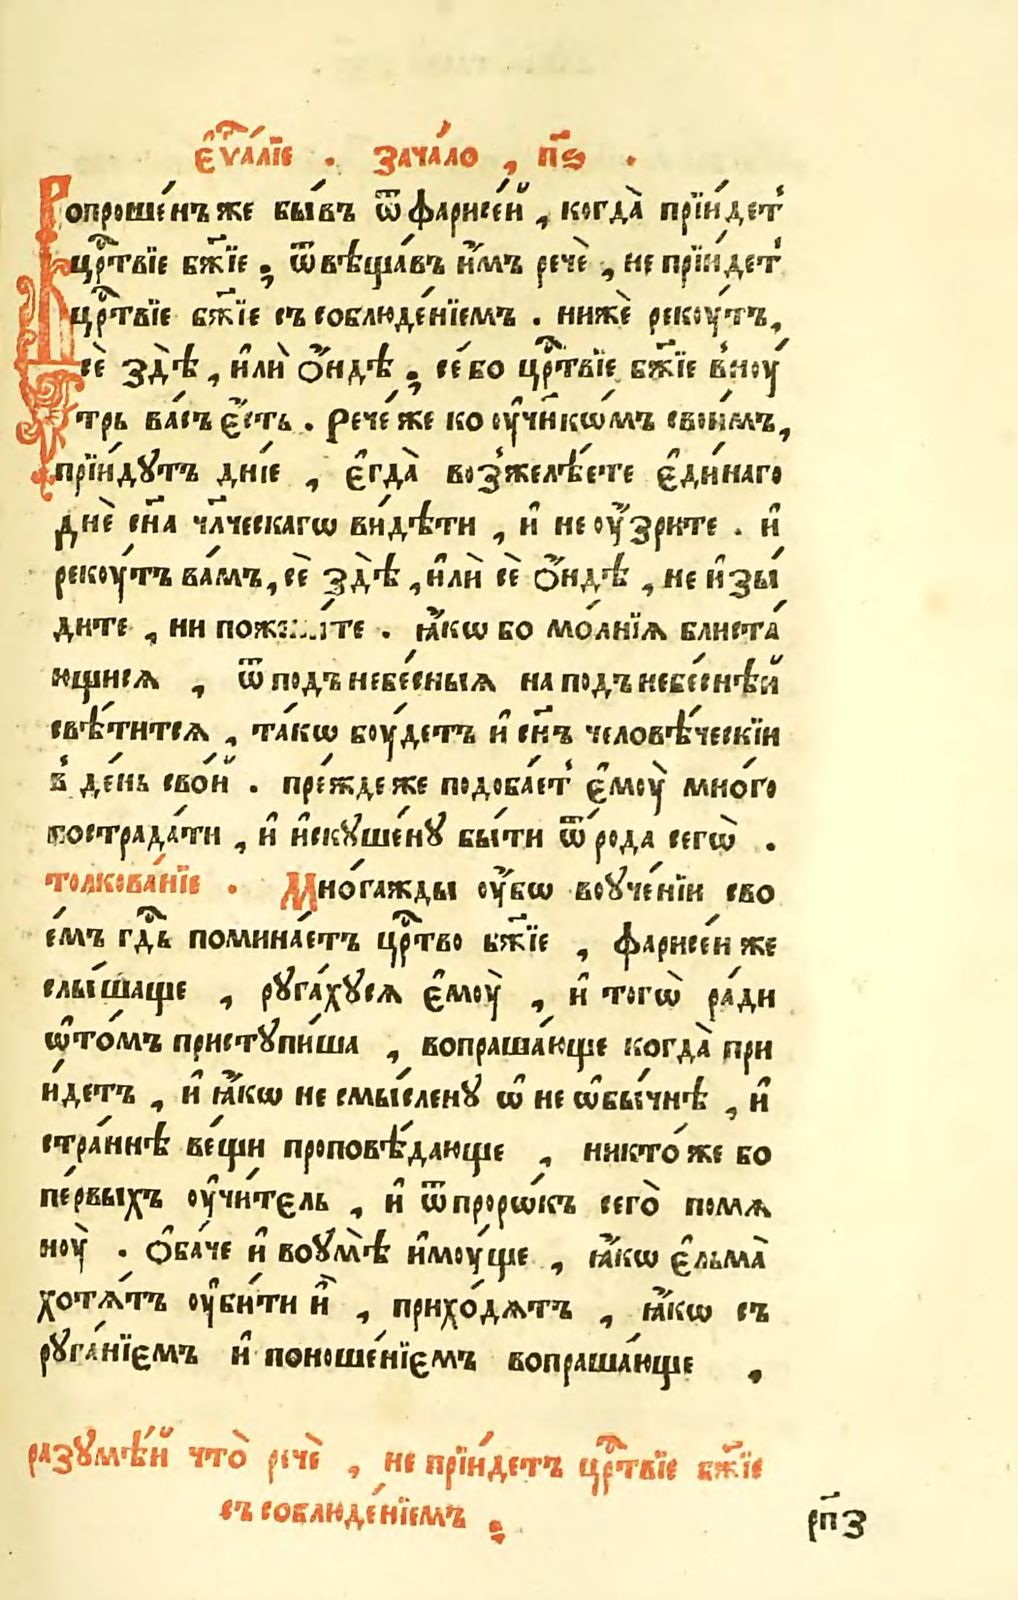 є҆ѵⷢ҇а́лїе . зача́ло , п҃ѕ .
Вопроше́нъ же бы́въ ѿ фарисе́й , когда̀ прїи́дет̾
црⷭ҇твїе бж҃їе ; ѿвѣща́въ и҆̀мъ речѐ , не прїи́дет̾
црⷭ҇твїе бж҃їе съ соблюде́нїемъ . нижѐ рекоу́тъ,
сѐ здѣ̀ , и҆лѝ ѻ҆́ндѣ ; се́ бо црⷭ҇твїе бж҃їе в̾ноу́
трь ва́съ є҆́сть . Рече́ же ко оу҆чн҃кѡмъ свои́мъ,
прїи́дꙋтъ дні́е , є҆гда̀ воз̾желѣ́ете є҆ди́наго
днѐ сн҃а чл҃ческагѡ ви́дѣти , и҆ не оу҆́зрите . и҆
рекоу́тъ ва́мъ, сѐ здѣ̀ , и҆лѝ сѐ ѻ҆́ндѣ , не и҆зы́
дите , ни . ꙗ҆́кѡ бо мо́лнїѧ блиста́
ющисѧ , ѿ подънебе́сныѧ на подънебе́снѣй
свѣ́титсѧ , та́кѡ боу́детъ и҆ сн҃ъ человѣ́ческїи
в̾ де́нь сво́й . пре́жде же подоба́ет̾ є҆моу̀ мно́го
пострада́ти , и҆ и҆скꙋше́нꙋ бы́ти ѿ рода сегѡ̀ .
толкова́нїе . Мно́гажды оу҆́бѡ во оуче́нїи сво
е́мъ гдⷭ҇ь помина́етъ црⷭ҇тво бж҃їе , фарисе́и же
слы́шаще , рꙋга́хꙋсѧ є҆моу̀ , и҆ тогѡ̀ ра́ди
ѡ҆ то́мъ пристꙋпи́ша , вопраша́юще когда̀ при
и́детъ , и҆ ꙗ҆́кѡ не смы́сленꙋ ѡ҆ не ѡ҆бы́чнѣ , и҆
стра́ннѣ ве́щи проповѣ́дающе , никто́ же бо
пе́рвыхъ оу҆чи́тель , и҆ ѿ проро́къ сего̀ помѧ
ноу̀ . ѻ҆ба́че и҆ во оумѣ̀ и҆моу́ще , ꙗ҆́кѡ є҆льма̀
хотѧ́тъ оу҆би́ти и҆̀ , прихо́дѧтъ , ꙗ҆́кѡ съ
рꙋга́нїємъ и҆ поноше́нїємъ вопраша́юще ,
разꙋмѣ́й что̀ речѐ , не прїи́детъ црⷭ҇твїе бж҃їе
съ соблюде́нїемъ ;
рп҃з